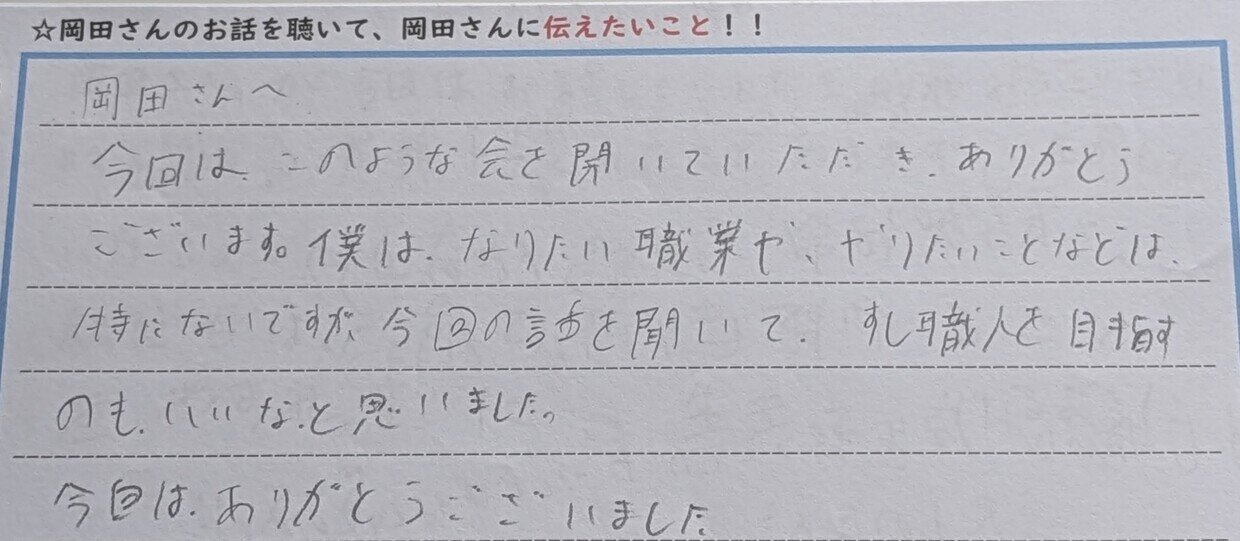 ☆岡田さんのお話を聴いて、岡田さんに伝えたいこと！！
岡田さんへ
今回は、このような会を開いていただき、ありがとう
ございます。僕は、なりたい職業や、やりたいことなどは、
特にないですが、今回の話を聞いて、すし職人を目指す
のも、いいな、と思いました。
今回は、ありがとうございました